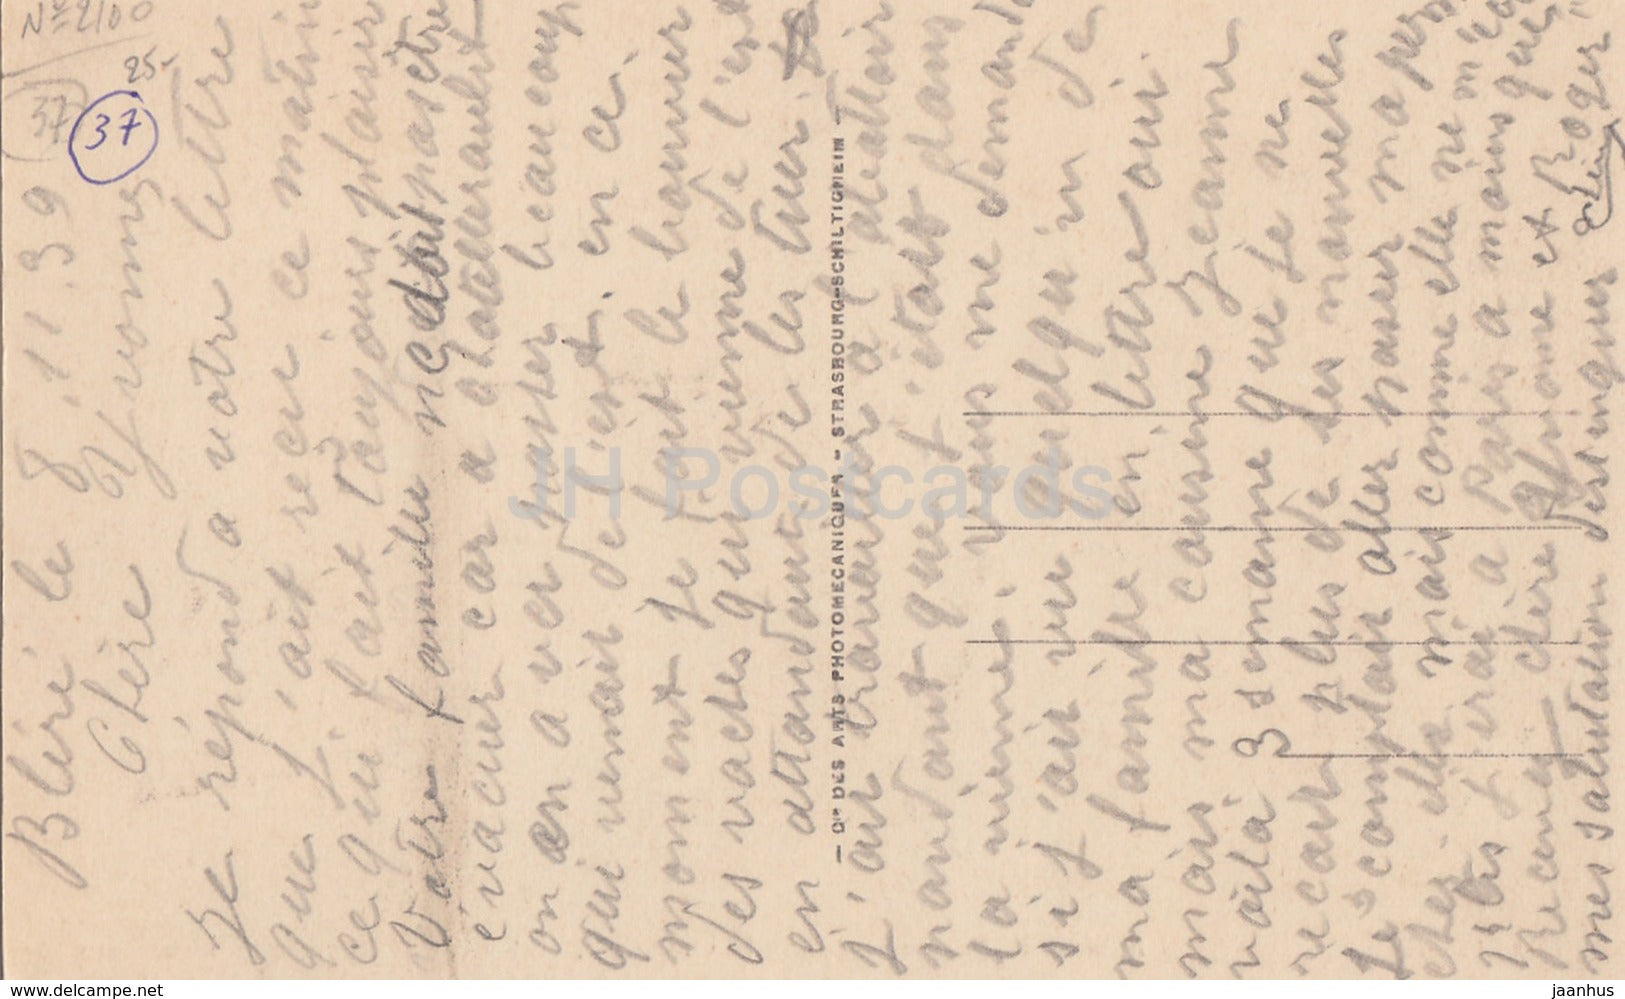 Nº 2100
37
37
25-
Bléré le 8.11.39
Chère Afnomme
Je répond a vôtre lettre
que j'ait recu ce matin
ce qui fait toujours plaisir
Vôtre famille ne doit pas être
évacuer car a chatellerault
on en a ver passer beaucoup
qui venait de l'est. en ce
moment je fait le bonnier
des vaches qui vienne de l'est
en attandant de les tuer.
j'ait travailler a l'abattoir
pandant que j'était dans
la vienne. vous me demandé
si j'ait vu quelqu'in de
ma famille en lettre oui
mais ma cousine Jeanne
voilà 3 semaine que je ne
recoit plus de ses nouvelles
je comptait aller passer ma perm
chez elle mais comme elle ne m'écri
pas j'irai a Paris a moins que
Recevez chère Afnomme et Roger
mes salutation destinguer
— Cie DES ARTS PHOTOMECANIQUES — STRASBOURG-SCHILTIGHEIM —
JH Postcards
www.delcampe.net
jaanhus